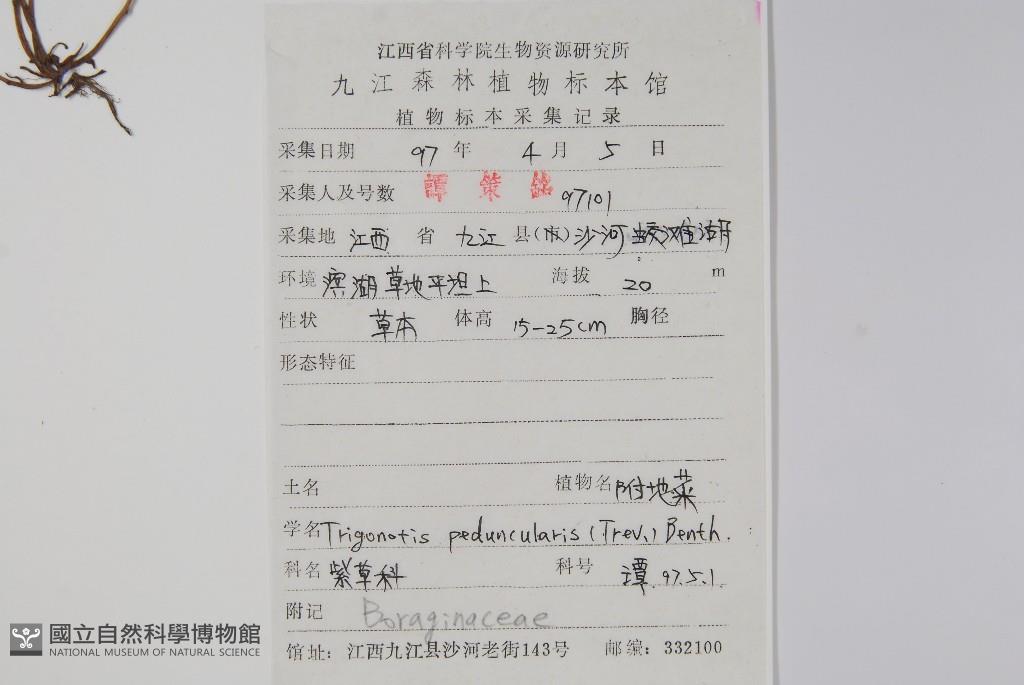 江西省科学院生物资源研究所
九江森林植物标本馆
植物标本采集记录
采集日期 97 年 4 月 5 日
采集人及号数 譚策銘 97101
采集地 江西 省 九江 县(市) 沙河 滩湖
环境 滨湖草地平坦上 海拔 20 m
性状 草本 体高 15-25cm 胸径
形态特征
土名 植物名 附地菜
学名 Trigonotis peduncularis (Trev.) Benth.
科名 紫草科 科号 譚.97.5.1.
附记 Boraginaceae
馆址: 江西九江县沙河老街143号 邮编: 332100
國立自然科學博物館
NATIONAL MUSEUM OF NATURAL SCIENCE